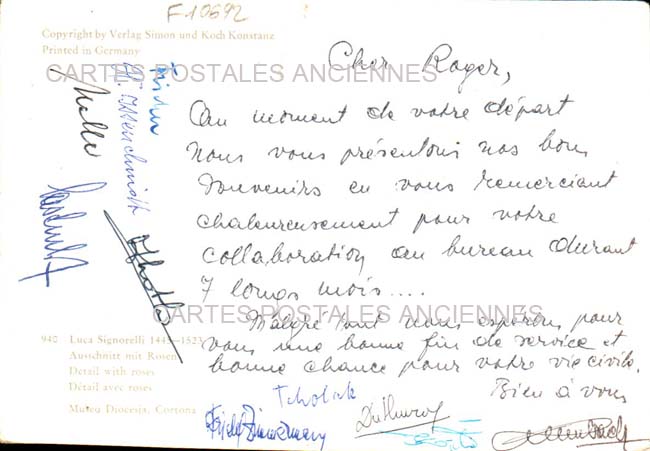 F10692
Copyright by Verlag Simon und Koch Konstanz
Printed in Germany
CARTES POSTALES ANCIENNES
Cher Roger,
Au moment de votre départ
nous vous présentons nos bons
souvenirs en vous remerciant
chaleureusement pour votre
collaboration au bureau durant
7 longs mois....
CARTES POSTALES ANCIENNES
Malgré tout nous espérons pour
vous une bonne fin de service et
bonne chance pour votre vie civile.
Bien à vous
940 Luca Signorelli 1445–1523
Ausschnitt mit Rosen
Detail with roses
Détail avec roses
Museu Diocesja, Cortona
Zimmermann